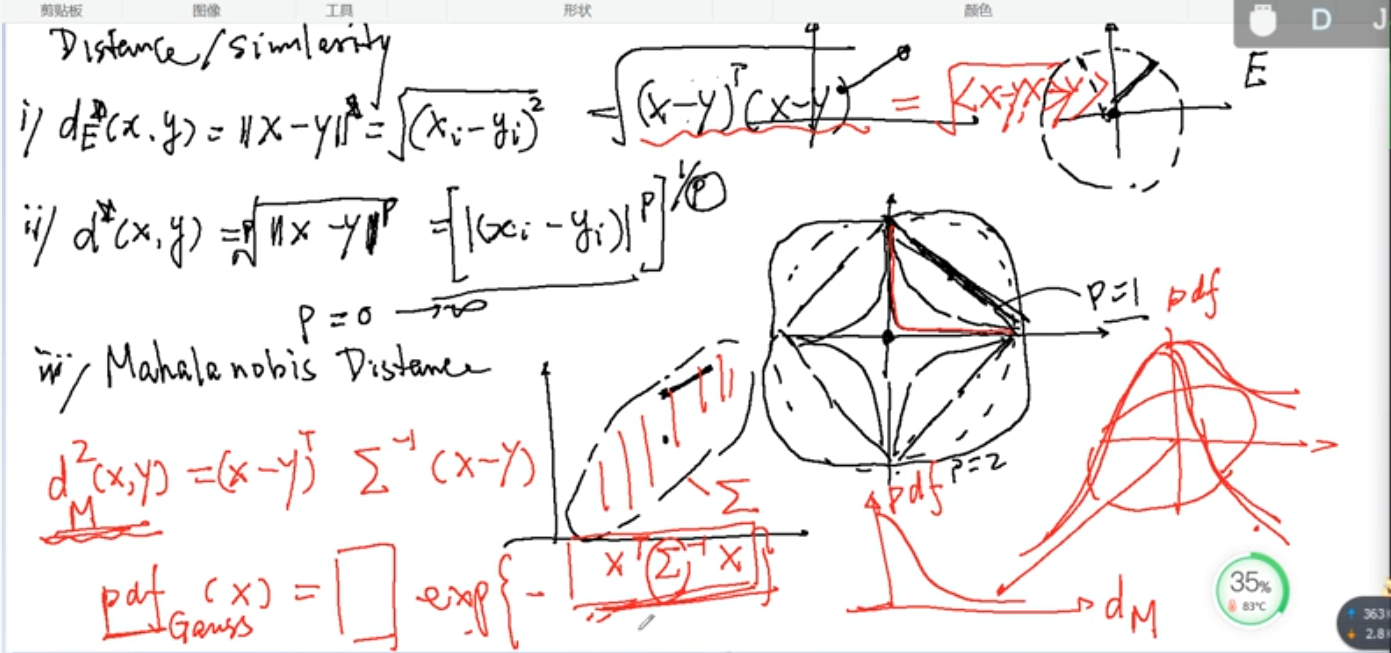 剪贴板 图像 工具 形状 颜色
D J
Distance/similarity
i) d_E(x,y) = ||x-y|| = √(x_i-y_i)² = √(x-y)ᵀ(x-y) = √<x-y,x-y>
E
ii) d(x,y) = ᵖ√||x-y||ᵖ = [|(x_i-y_i)|ᵖ]^1/p
p=0 → ∞
p=1
pdf
iii) Mahalanobis Distance
p=2
d²_M(x,y) = (x-y)ᵀ Σ⁻¹ (x-y)
Σ
pdf
pdf_Gauss(x) = □ exp{-xᵀΣ⁻¹x}
d_M
35%
83°C
363
2.8